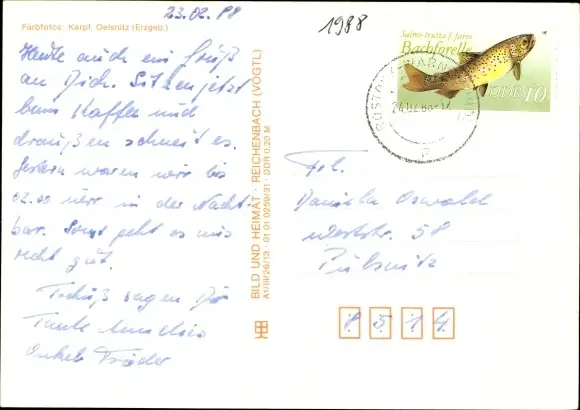 23.02.88
1988
Farbfotos: Karpf, Oelsnitz (Erzgeb.)
Heute auch ein Gruß
an Dich. Sitzen jetzt
beim Kaffee und
draußen schneit es.
Gestern waren wir bis
02.00 Uhr in der Nacht-
bar. Sonst geht es uns
recht gut.
Tschüß sagen Dir
Tante
Onkel
BILD UND HEIMAT · REICHENBACH (VOGTL)
A1/III/26/13 · 01 01 0259/31 · DDR 0,20 M
Salmo trutta f. fario
Bachforelle
DDR 10
Frl.
Daniela Oswald
Weststr. 58
Pulsnitz
8 5 1 4